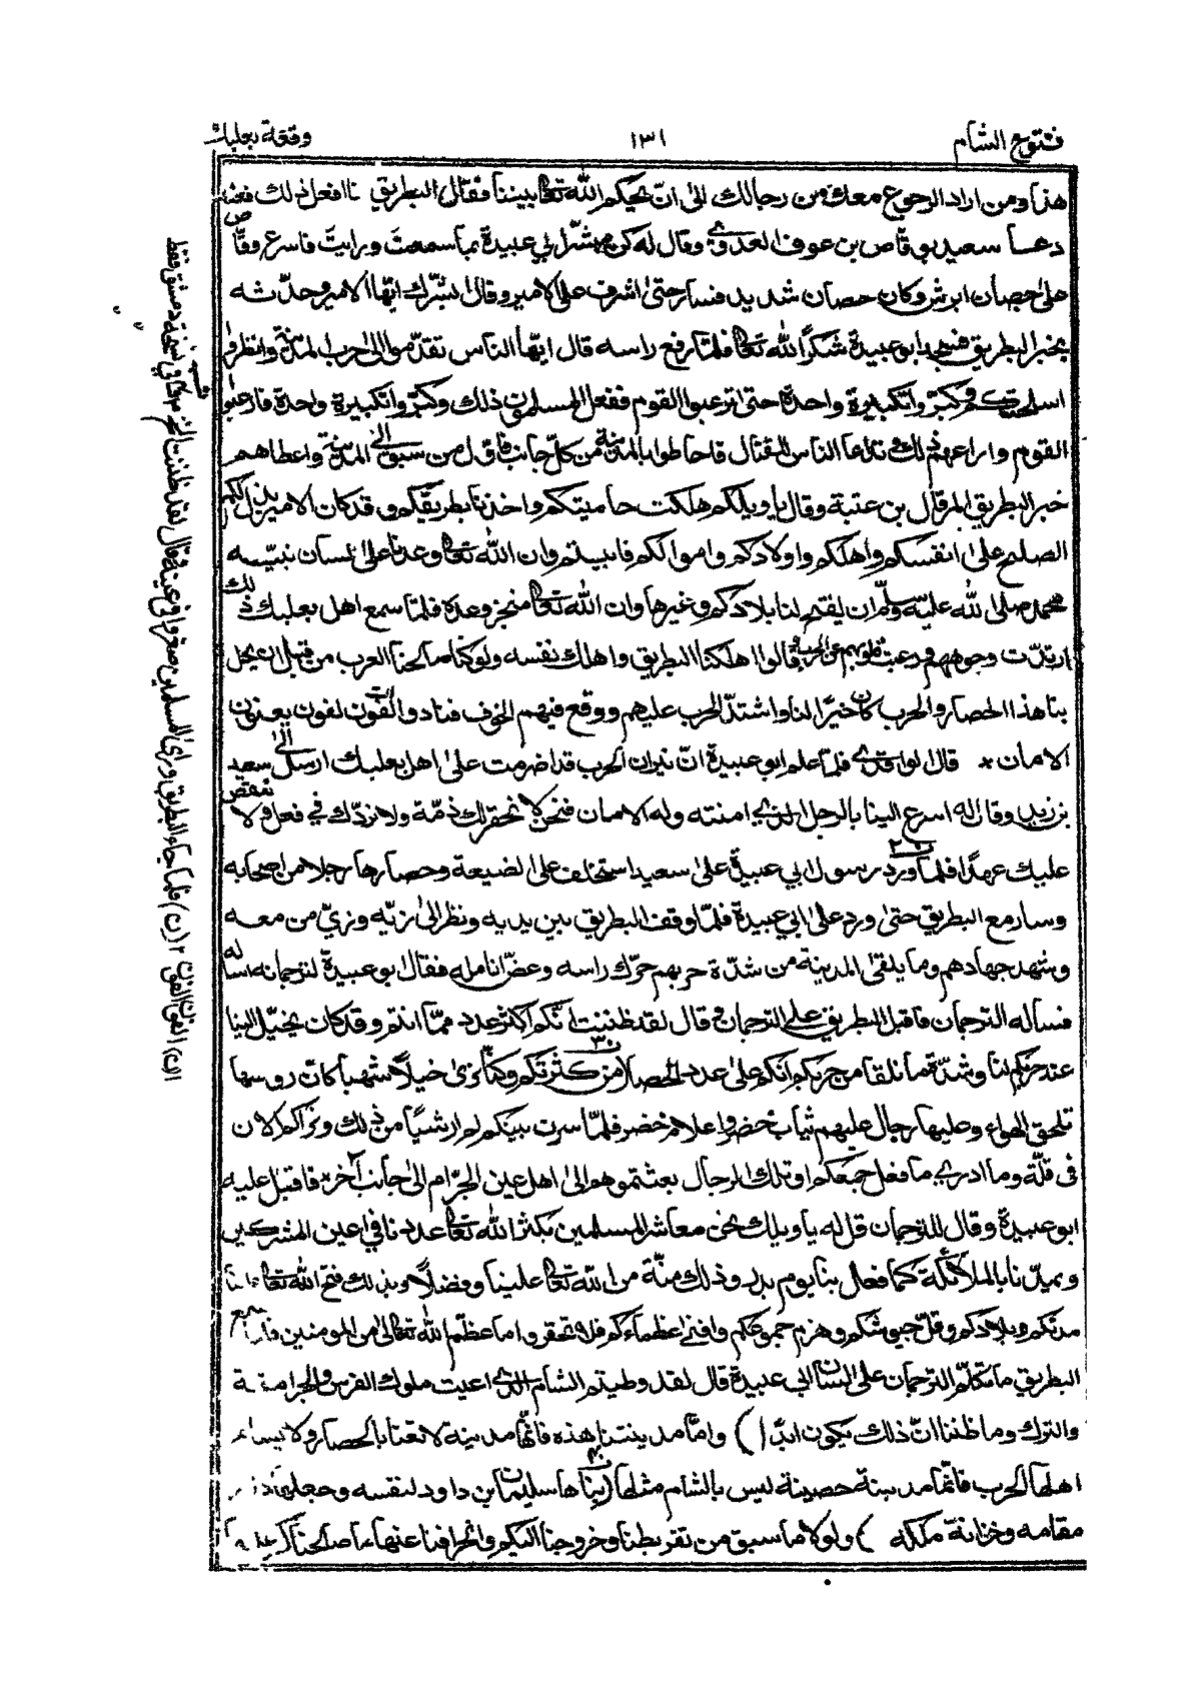 فتوح الشام
١٣١
وقعة بعلبك
هذا ومن اراد الرجوع معك ومن رجالك الى ان يحيكم الله تعالى بيننا فقال البطريق انا افعل ذلك فعند
دعا سعيد بوقاص بن عوف العدوي وقال له كن مبشر ابي عبيدة بما سمعت ورايت فاسرع وقاص
على حصان ابرش وكان حصان شديد فسار حتى اشرف على الامير وقال ابشرك ايها الامير وحدثه
بخبر البطريق فسجد ابو عبيدة شكرًا لله تعالى فلما رفع راسه قال ايها الناس تقدموا الى حرب المدينة وانظروا
اسلحتكم وكبروا تكبيرة واحدة حتى ترعبوا القوم ففعل المسلمون ذلك وكبروا تكبيرة واحدة فارعبوا
القوم وراعهم ذلك وتداعا الناس للقتال فاحاطوا بالمدينة من كل جانب فاول من سبق الى المدينة واعطاهم
خبر البطريق المرقال بن عتبة وقال يا ويلكم هلكت حاميتكم واخذنا بطريقكم وقد كان الامير بذل لكم
الصلح على انفسكم واهلكم واولادكم واموالكم فابيتم وان الله تعالى وعدنا على لسان نبيه
محمد صلى الله عليه وسلم ان يفتح لنا بلادكم وغيرها وان الله تعالى منجز وعده فلما سمع اهل بعلبك ذلك
اربدت وجوههم ورعبت قلوبهم عن الحرب وقالوا اهلكنا البطريق واهلك نفسه ولو كنا صالحنا العرب من قبل ان يحل
بنا هذا الحصار والحرب كان خيرًا لنا واشتد الحرب عليهم ووقع فيهم الخوف فنادوا الفون لفون يعنون
الامان * قال الواقدي فلما علم ابو عبيدة ان نيران الحرب قد اضرمت على اهل بعلبك ارسل الى سعيد
بن زيد وقال له اسرع الينا بالرجل الذي امنته وله الامان فنحن لا نحقر لك ذمة ولا نردك في فعل ولا ننقض
عليك عهدًا فلما ورد رسول ابي عبيدة على سعيد استخلف على الضيعة وحصارها رجلا من اصحابه
وسار مع البطريق حتى ورد على ابي عبيدة فلما وقف البطريق بين يديه ونظر الى زيه وزي من معه
وشهد جهادهم وما يلقى المدينة من شدة حربهم حرك راسه وعض انامله فقال ابو عبيدة لترجمانه اساله
فساله الترجمان فاقبل البطريق على الترجمان وقال لقد ظننت انكم اكثر عدد مما انتم وقد كان يخيل الينا
عند حربكم لنا وشدة ما نلقا من حربكم انكم على عدد الحصا من كثرتكم وكنا نرى خيلًا شهبا كان روسها
تلحق الهواء وعليها رجال عليهم ثياب خضر واعلام خضر فلما سرت بينكم لم ار شيًا من ذلك ونراكم الان
في قلة وما ادري ما فعل جمعكم او تلك الرجال بعثتموهم الى اهل عين الجر ام الى جانب آخر فاقبل عليه
ابو عبيدة وقال للترجمان قل له يا ويلك نحن معاشر المسلمين يكثر الله تعالى عددنا في اعين المشركين
ويمدنا بالملائكة كما فعل بنا يوم بدر وذلك منة من الله تعالى علينا وفضلًا وبذلك فتح الله تعالى لنا
مدنكم وبلادكم وقل جيوشكم وهزم جموعكم وافنى عظماءكم فلا تحقروا ما عظم الله تعالى من المومنين فلما سمع
البطريق ما تكلم الترجمان على لسان ابي عبيدة قال لقد وطيتم الشام الذي اعيت ملوك الفرس والجرامقة
والترك وما ظننا ان ذلك يكون ابدًا ( ) واما مدينتنا هذه فانها مدينة لا تعنا بالحصار ولا
اهلها الحرب فانها مدينة حصينة ليس بالشام مثلها (بناها سليمان بن داود لنفسه وجعلها دار
مقامه وخزانة ملكه ) ولولا ما سبق من تفريطنا وخروجنا اليكم وانحرافنا عنها ما صالحناكم
(١ن) الفون الفون ٢ (ن) فلما جاء البطريق وراى المسلمين صغروا في عينه فقال لقد ظننت الخ ٣ كذا في نسخة دمشق فقط